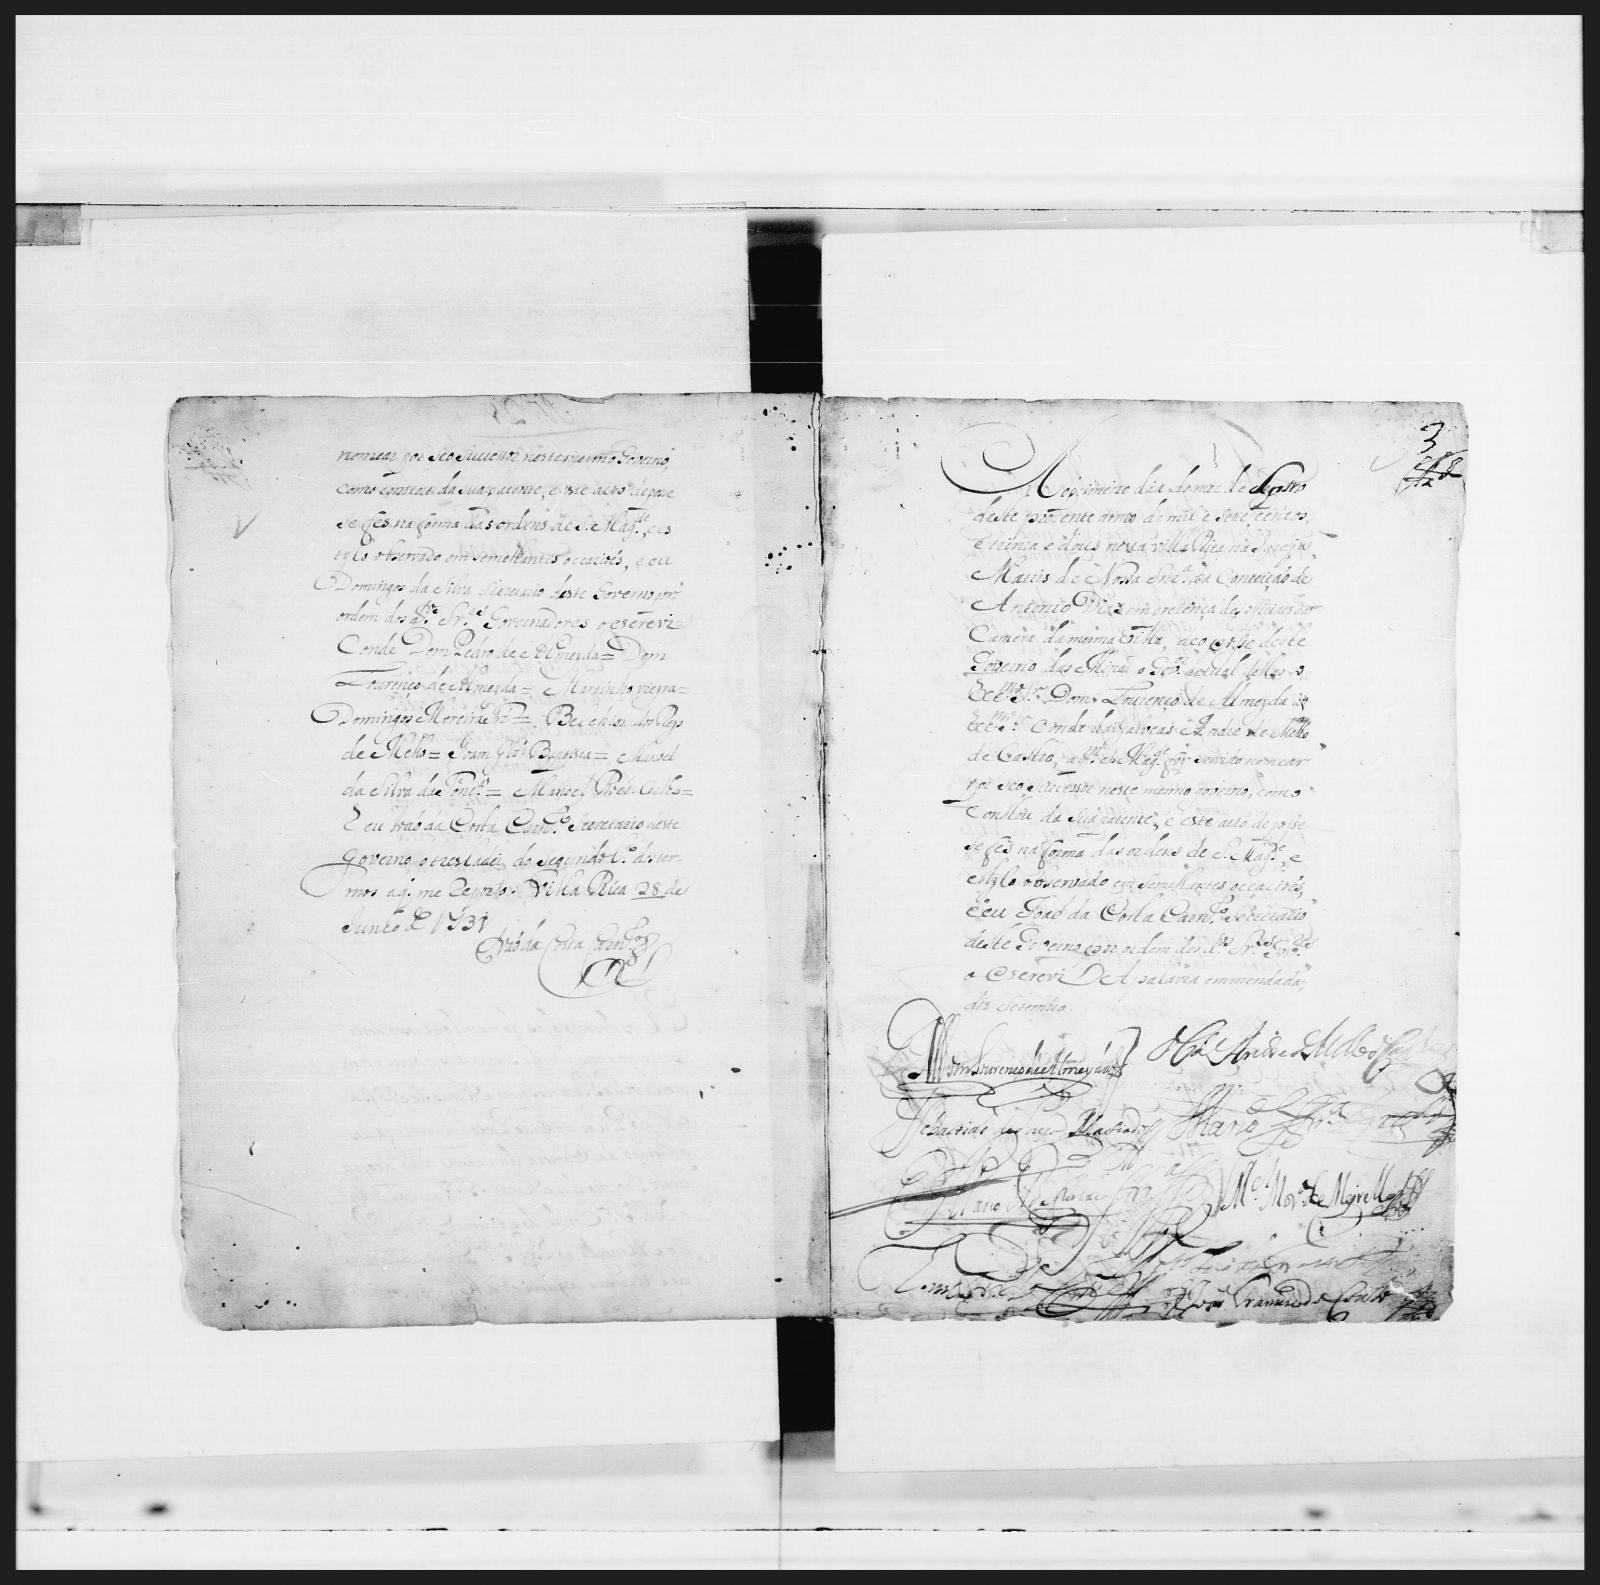 nomear por seo sucessor neste mesmo Governo,
como constou da sua patente, e este acto de posse
se fes na forma das ordens de S. Mag.de, e es
tylo observado em semelhantes occazioẽs, e eu
Domingos da Silva Secretario deste Governo por
ordem dos d.os Sr.es Governadores o escrevi=
Conde Dom Pedro de Almeyda= Dom
Lourenço de Almeyda= Martinho vieyra=
Domingos Moreira = Belchior dos Reys
de Mello= Joam Baptista= Manoel
da Silva da = Manoel =
E eu João da Costa Carn.ro Secretario deste
Governo o tresladei do Segundo L.o dos ter-
mos a q. me Reporto. Villa Rica 28 de
Junho de 1731
João da Costa Carn.ro
3
Ao primeiro dia do mez de
deste prezente anno de mil e sete centos,
e trinta e dous nesta villa Rica na Igreja
Matris de Nossa Snr.a da Conceição de
Antonio Dias em prezença dos officiaes da
Camera da mesma Villa, deo posse deste
Governo das Minas o Gov.or actual dellas o
Ex.mo Sr. Dom Lourenço de Almeyda ao
Ex.mo Sr. Conde das Galveas Andre de Mello
de Castro, a q.m S. Mag.de foy servido nomear
por seo sucessor neste mesmo governo, como
constou da sua patente, e este acto de posse
se fes na forma das ordens de S. Mag.e, e
estylo observado em semelhantes occazioẽs,
e eu João da Costa Carn.ro Secretario
deste Governo por ordem dos d.os Sr.es Gov.es
o escrevi D A palavra emmendada,
diz Setembro.
Dom Lourenço de Almeyda
Andre de Mello Castro
Sebastião Machado
M.el Mor.a de Meyrelles